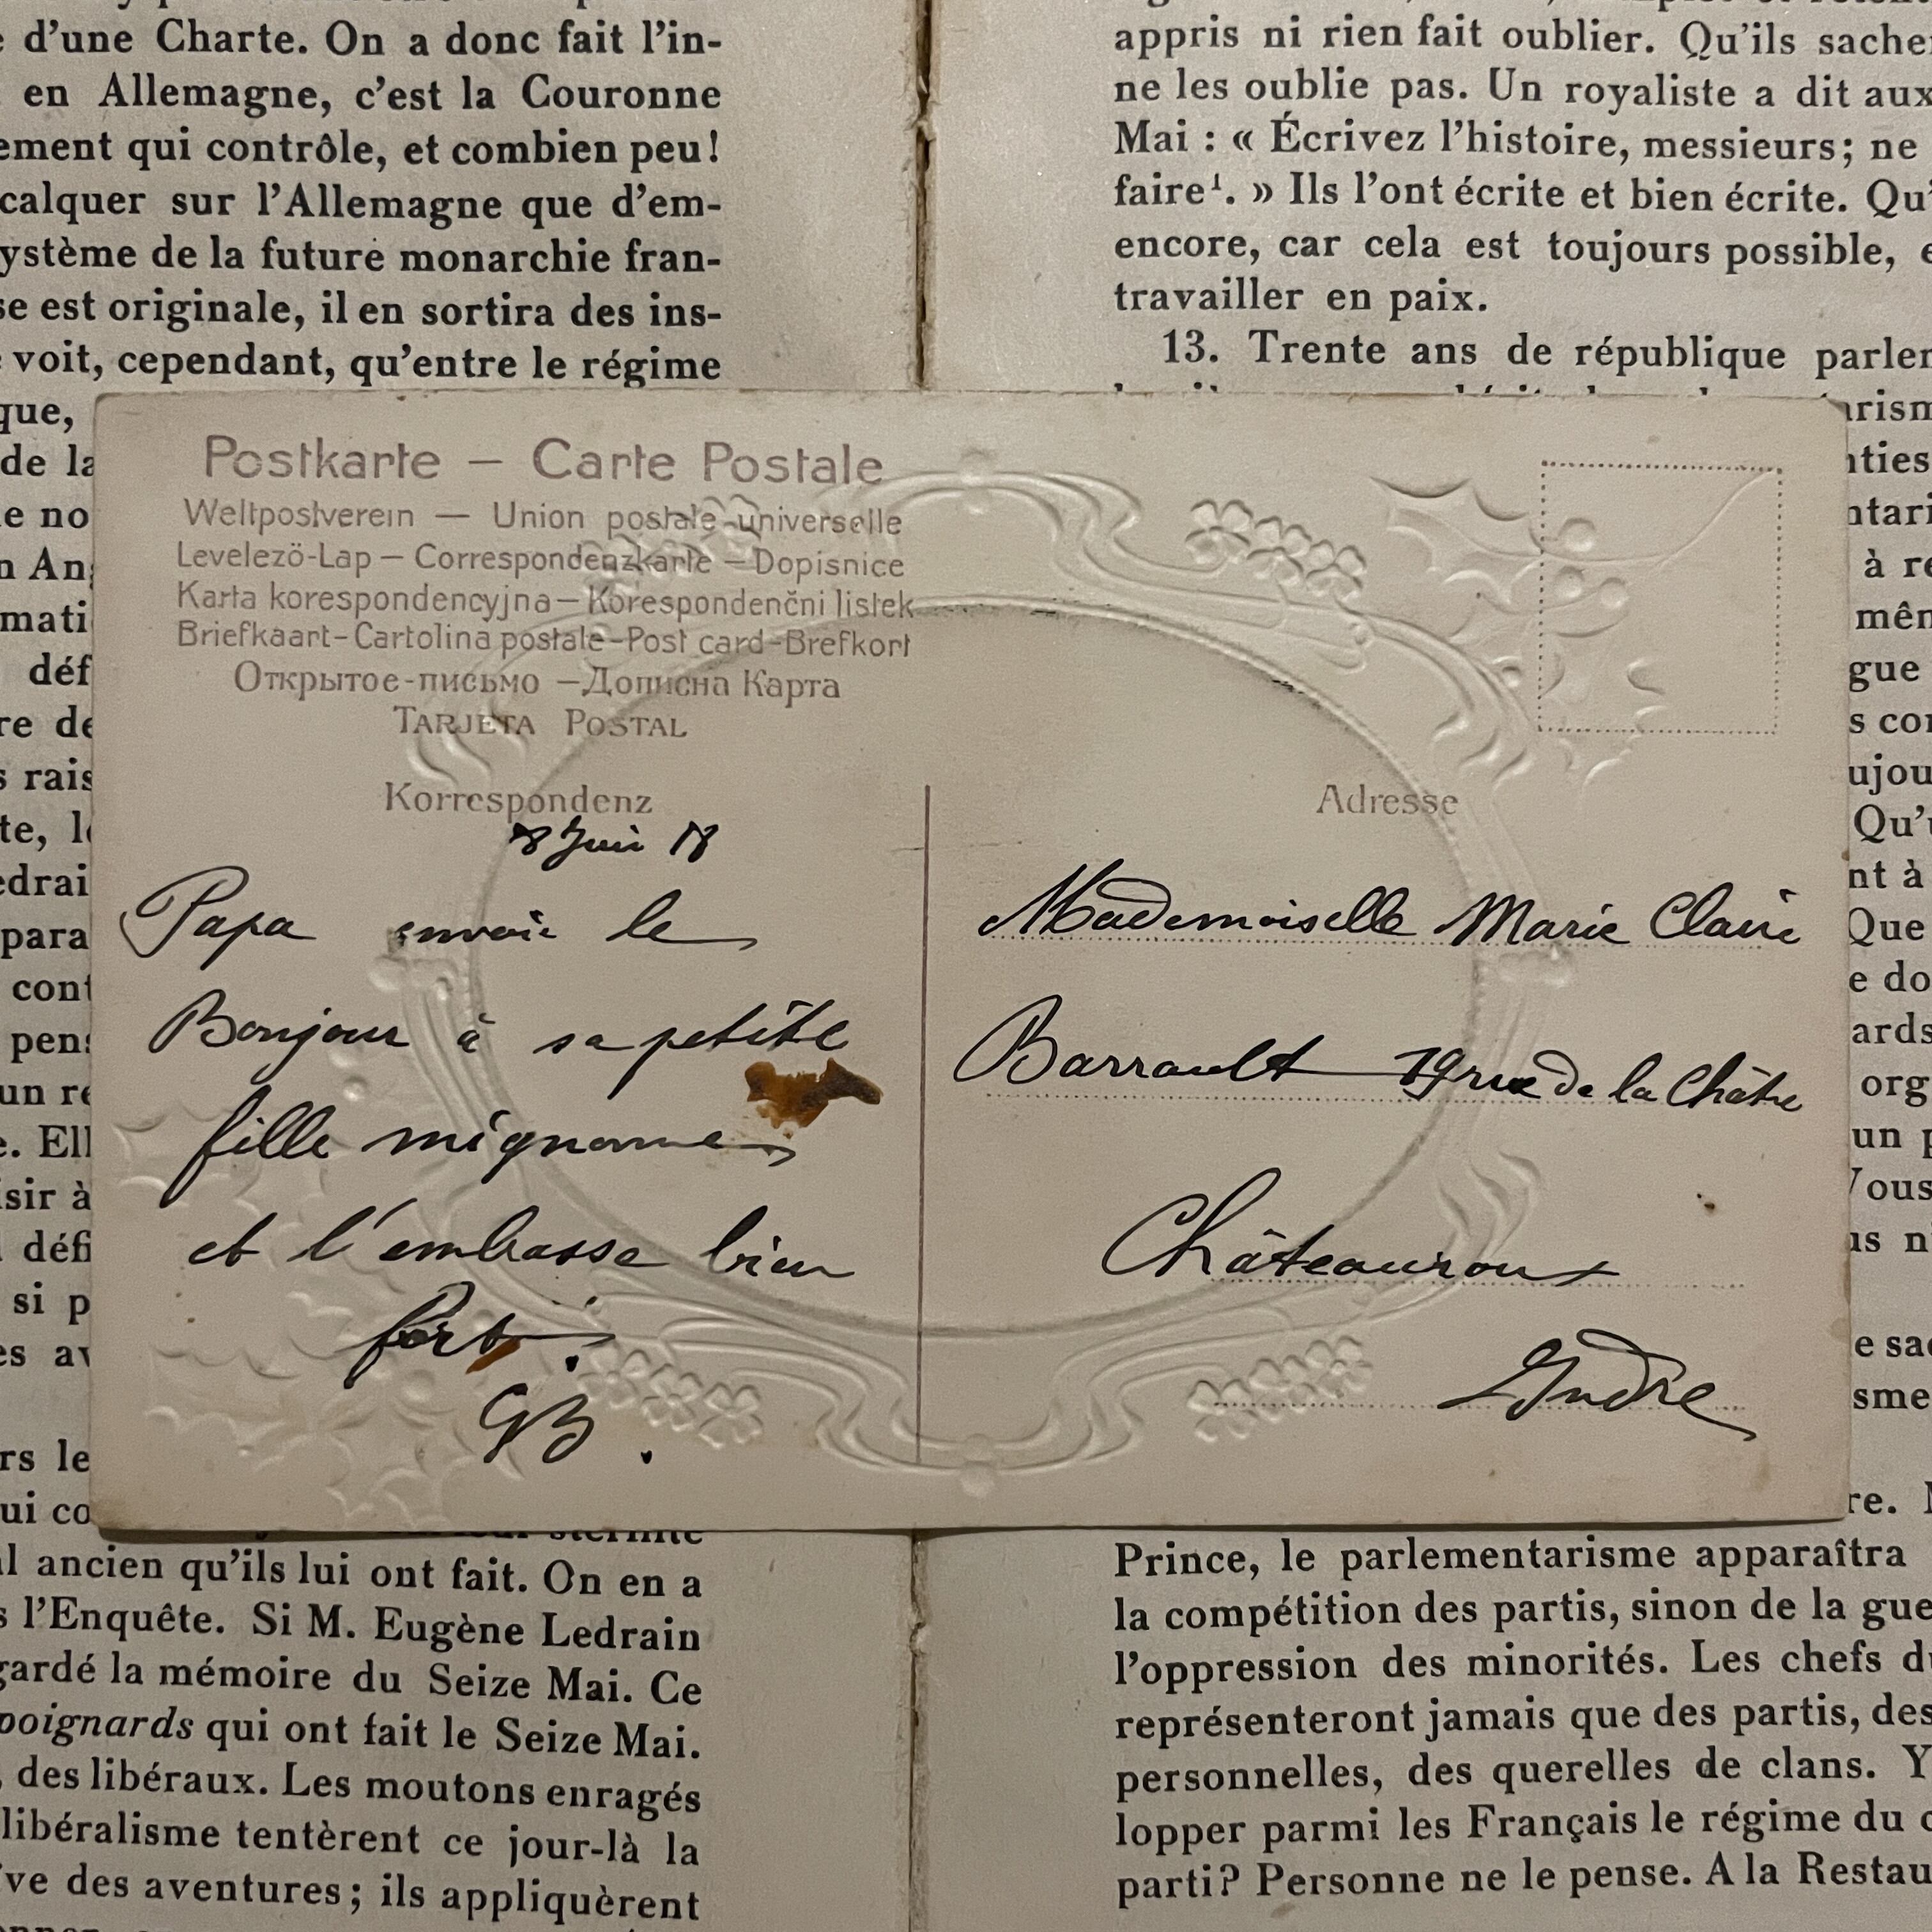 d'une Charte. On a donc fait l'in-
en Allemagne, c'est la Couronne
ement qui contrôle, et combien peu!
calquer sur l'Allemagne que d'em-
ystème de la future monarchie fran-
se est originale, il en sortira des ins-
voit, cependant, qu'entre le régime
que,
de la
no
An
mati
déf
re de
rais
te,
edrai
para
cont
pens
un
. Ell
sir à
défi
si p
es av
rs le
ui co
al ancien qu'ils lui ont fait. On en a
s l'Enquête. Si M. Eugène Ledrain
gardé la mémoire du Seize Mai. Ce
poignards qui ont fait le Seize Mai.
, des libéraux. Les moutons enragés
libéralisme tentèrent ce jour-là la
ve des aventures; ils appliquèrent
appris ni rien fait oublier. Qu'ils sache
ne les oublie pas. Un royaliste a dit aux
Mai : « Écrivez l'histoire, messieurs; ne
faire¹. » Ils l'ont écrite et bien écrite. Qu'
encore, car cela est toujours possible, e
travailler en paix.
13. Trente ans de république parlem
arism
nties
ntari
à re
mêm
gue
s con
ujou
Qu'u
nt à
Que
e do
ards
org
un p
Vous
us n'
e sac
sme
re.
Prince, le parlementarisme apparaîtra
la compétition des partis, sinon de la gue
l'oppression des minorités. Les chefs du
représenteront jamais que des partis, des
personnelles, des querelles de clans. Y
lopper parmi les Français le régime du
parti? Personne ne le pense. A la Restau
Postkarte — Carte Postale
Weltpostverein — Union postale universelle
Levelező-Lap — Correspondenzkarte — Dopisnice
Karta korespondencyjna — Korespondenčni listek
Briefkaart-Cartolina postale-Post card-Brefkort
Открытое-письмо — Дописна Карта
TARJETA POSTAL
Korrespondenz
8 Juin 18
Papa envoie le
Bonjour à sa petite
fille mignonne
et l'embrasse bien
fort.
GB.
Adresse
Mademoiselle Marie Claire
Barrault 19 rue de la Châtre
Châteauroux
Indre